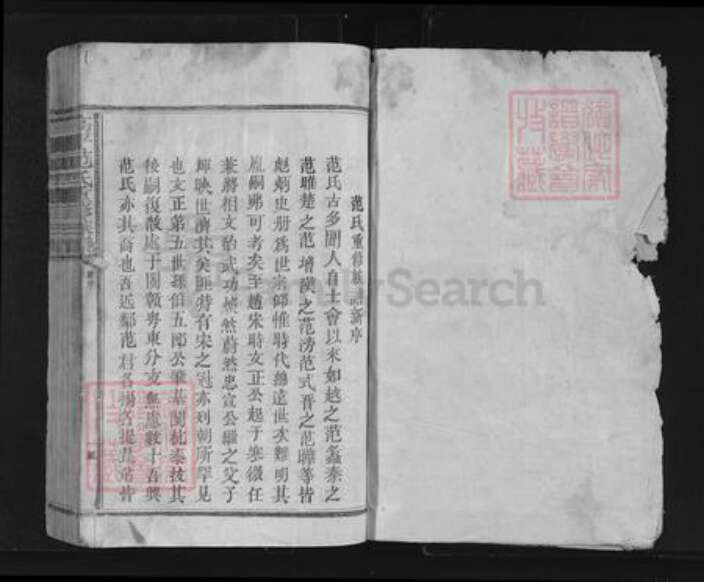 范氏重修族譜新序
范氏古多聞人自士會以來如越之范蠡秦之
范雎楚之范增漢之范滂范式晉之范曄等皆
彪炳史册為世宗師惟時代緜遠世次難明其
胤嗣弗可考矣至趙宋時文正公起于寒微任
兼將相文韜武功煥然蔚然忠宣公繼之父子
輝映世濟其美匪特有宋之冠亦列朝所罕見
也文正第五世孫伯五郎公肇基閩杭泰拔其
後嗣復散處于閩贛粵東分支無慮數十吾興
范氏亦其裔也吾近鄰范君名揚名提昆弟皆
FamilySearch